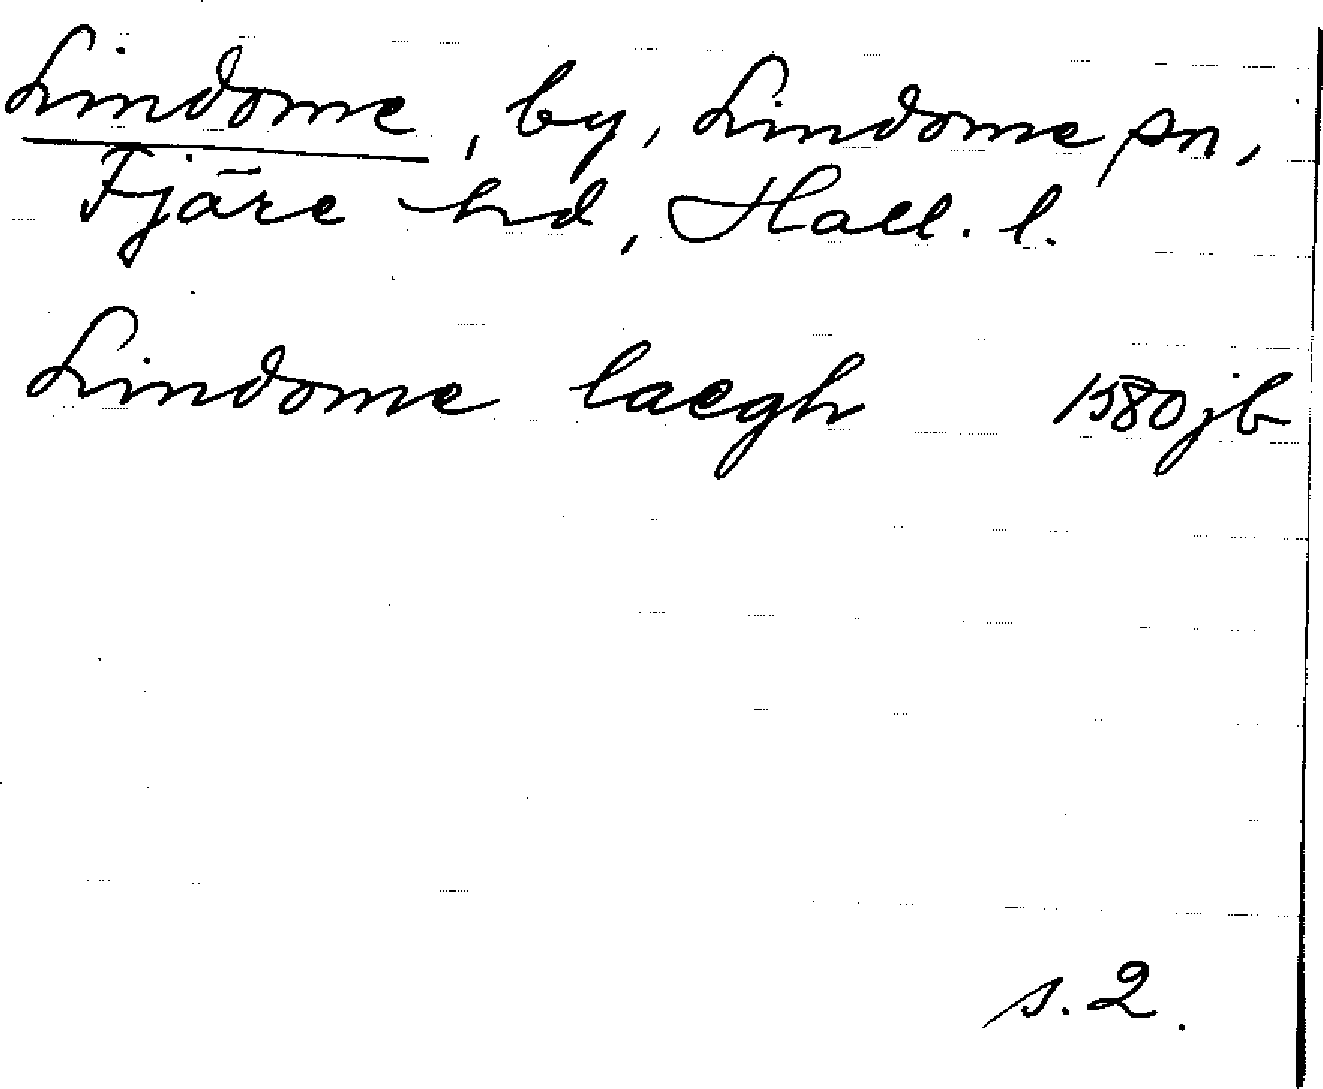 Lindome, by, Lindome sn,
Fjäre hd, Hall. l.
Lindome laegh 1580 jb
s. 2.